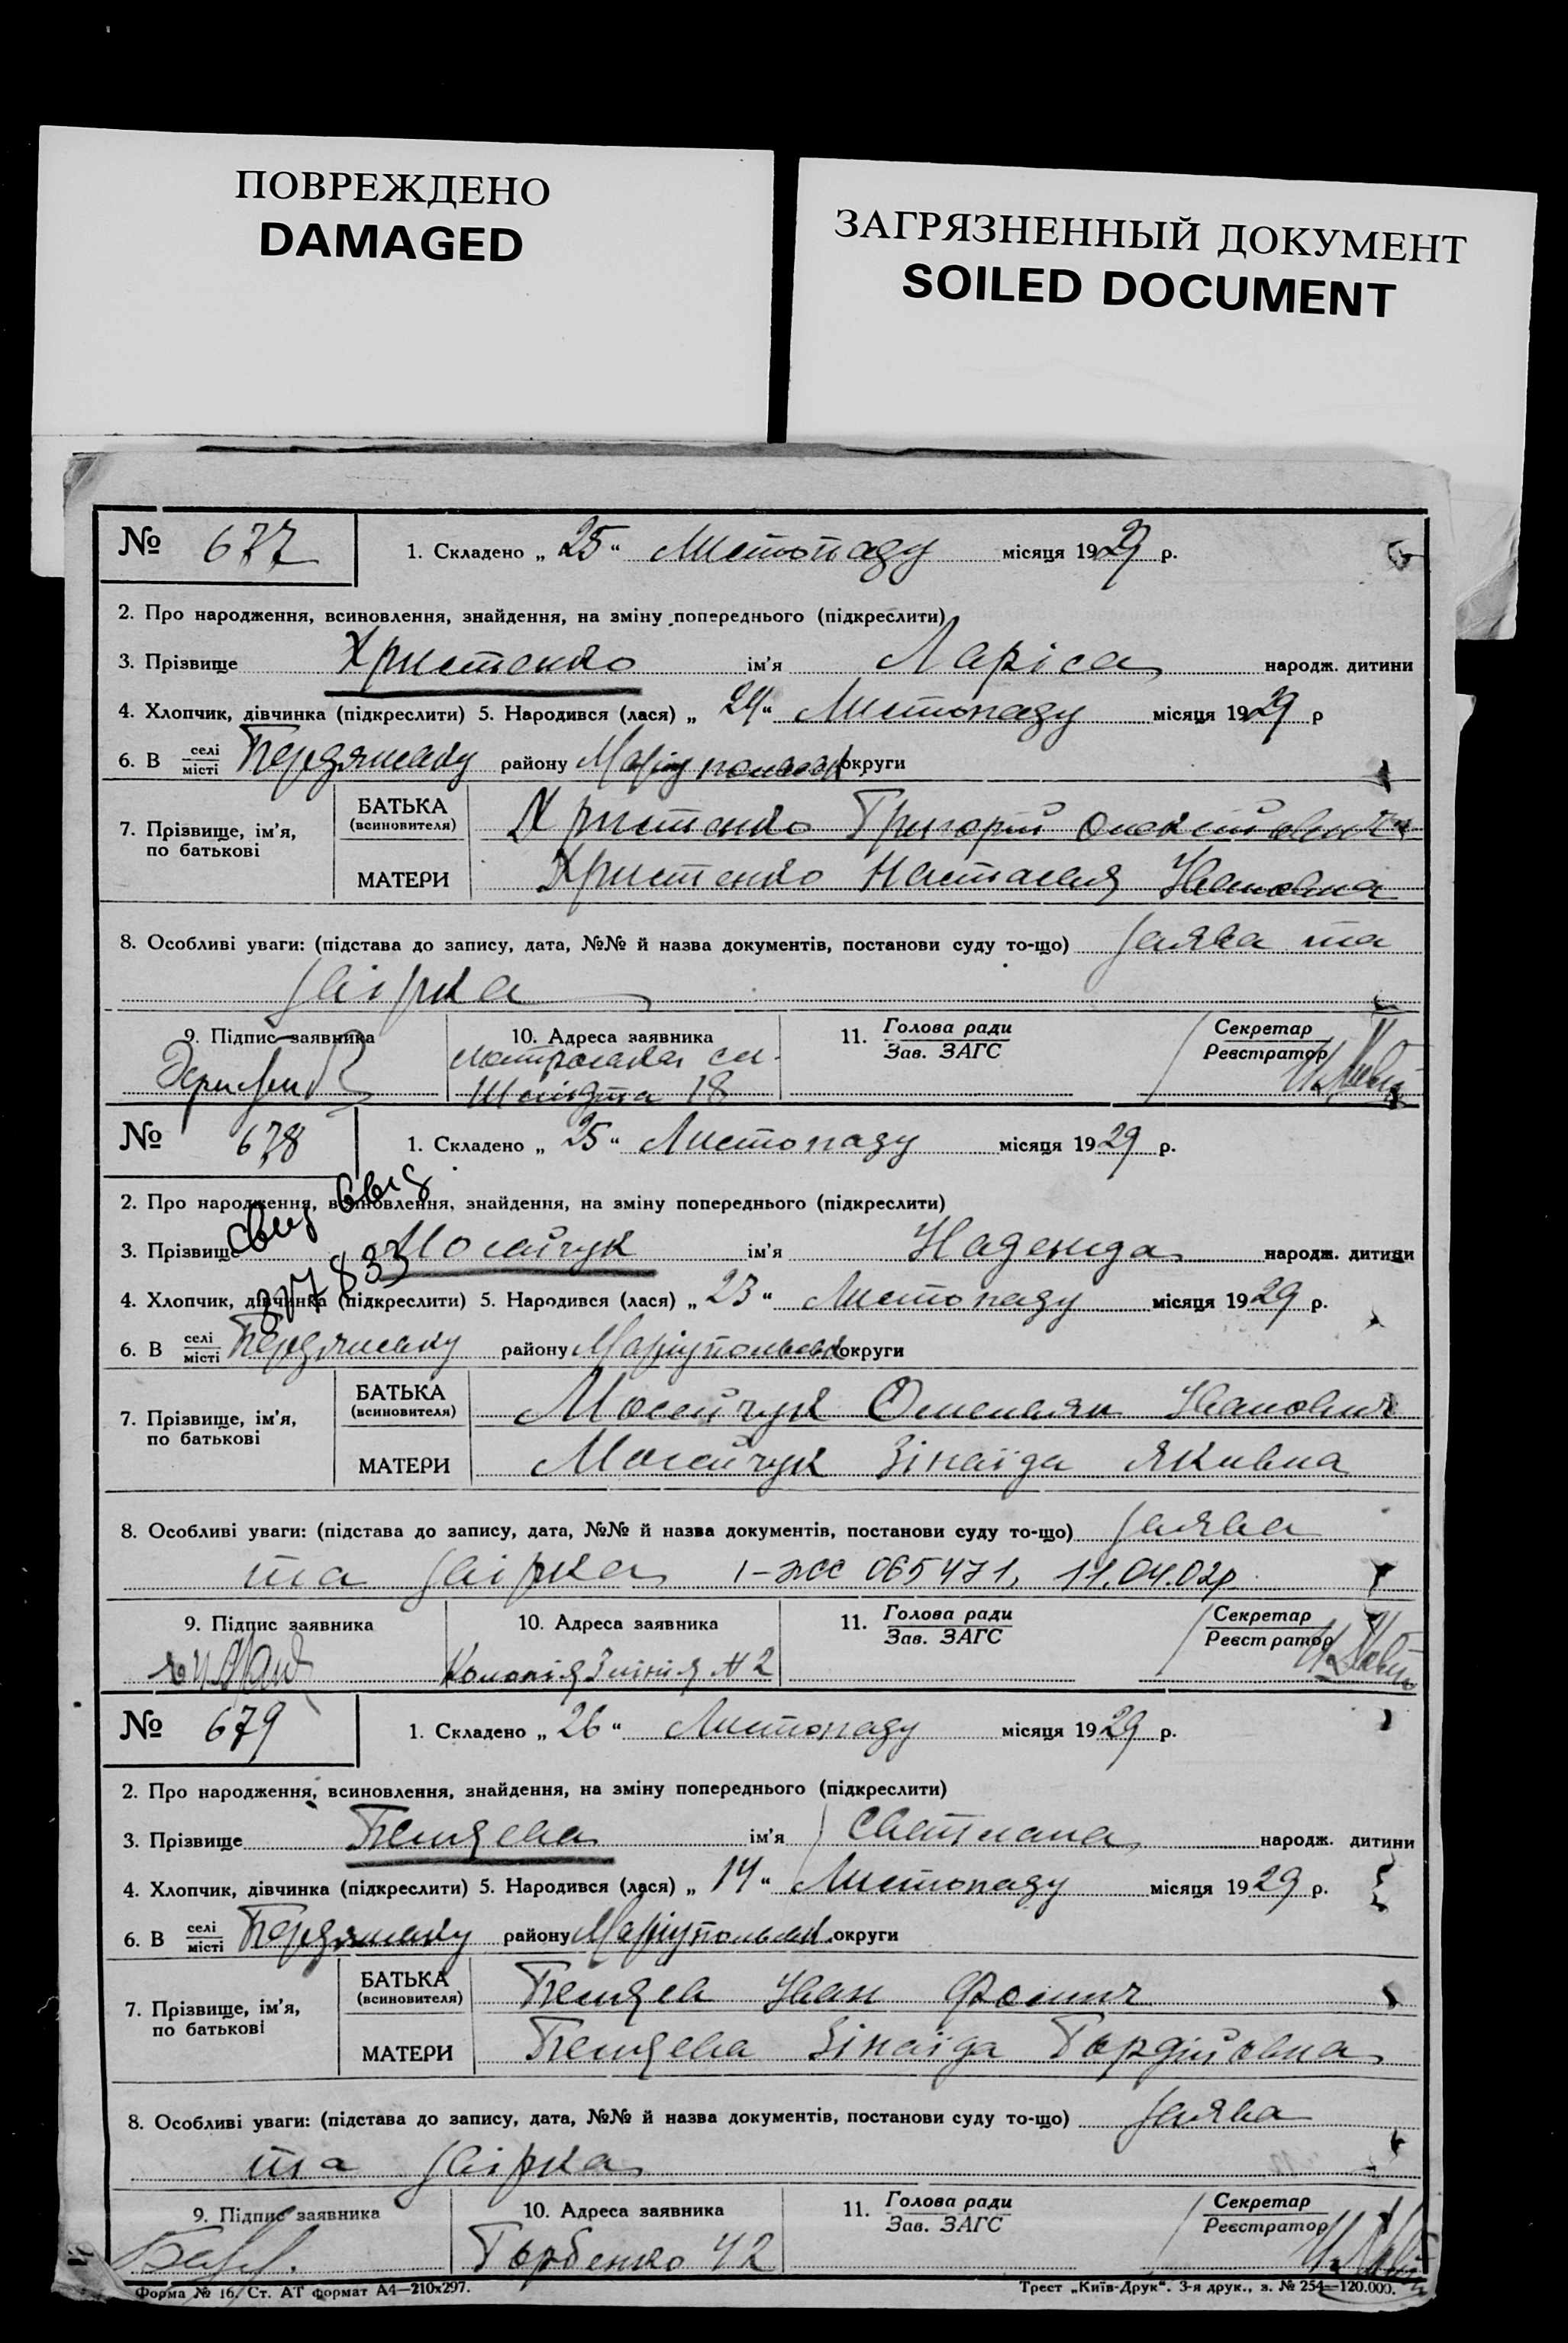 ПОВРЕЖДЕНО
DAMAGED
ЗАГРЯЗНЕННЫЙ ДОКУМЕНТ
SOILED DOCUMENT
№ 677 1. Складено „ 25 “ Листопаду місяця 1929 р.
2. Про народження, всиновлення, знайдення, на зміну попереднього (підкреслити)
3. Прізвище Христенко ім'я Лариса народж. дитини
4. Хлопчик, дівчинка (підкреслити) 5. Народився (лася) „ 24 “ Листопаду місяця 1929 р
6. В селі місті Бердянську району Маріупольськ округи
7. Прізвище, ім'я, по батькові
БАТЬКА (всиновителя) Христенко Григорій
МАТЕРИ Христенко Настасия Ивановна
8. Особливі уваги: (підстава до запису, дата, №№ й назва документів, постанови суду то-що) заява та
звірка
9. Підпис заявника 10. Адреса заявника 11. Голова ради Зав. ЗАГС Секретар Реєстратор
Шмідта 18
№ 678 1. Складено „ 25 “ Листопаду місяця 1929 р.
2. Про народження, всиновлення, знайдення, на зміну попереднього (підкреслити)
3. Прізвище Мосейчук ім'я Надежда народж. дитини
4. Хлопчик, дівчинка (підкреслити) 5. Народився (лася) „ 23 “ Листопаду місяця 1929 р.
6. В селі місті Бердянську району Маріупольськ округи
7. Прізвище, ім'я, по батькові
БАТЬКА (всиновителя) Мосейчук Омельян Иванович
МАТЕРИ Мосейчук Зінаїда Якивна
8. Особливі уваги: (підстава до запису, дата, №№ й назва документів, постанови суду то-що) заява
та звірка 1-жс 065471, 11.04.02р
9. Підпис заявника 10. Адреса заявника 11. Голова ради Зав. ЗАГС Секретар Реєстратор
Колонія 3 лінія N 2
№ 679 1. Складено „ 26 “ Листопаду місяця 1929 р.
2. Про народження, всиновлення, знайдення, на зміну попереднього (підкреслити)
3. Прізвище ім'я Світлана народж. дитини
4. Хлопчик, дівчинка (підкреслити) 5. Народився (лася) „ 14 “ Листопаду місяця 1929 р.
6. В селі місті Бердянську району Маріупольськ округи
7. Прізвище, ім'я, по батькові
БАТЬКА (всиновителя) Иван Фомич
МАТЕРИ Зінаїда Гордійовна
8. Особливі уваги: (підстава до запису, дата, №№ й назва документів, постанови суду то-що) заява
та звірка
9. Підпис заявника 10. Адреса заявника 11. Голова ради Зав. ЗАГС Секретар Реєстратор
Горбенко 42
Форма № 16. Ст. АТ формат А4—210x297. Трест „Київ-Друк“. 3-я друк., з. № 254—120.000.